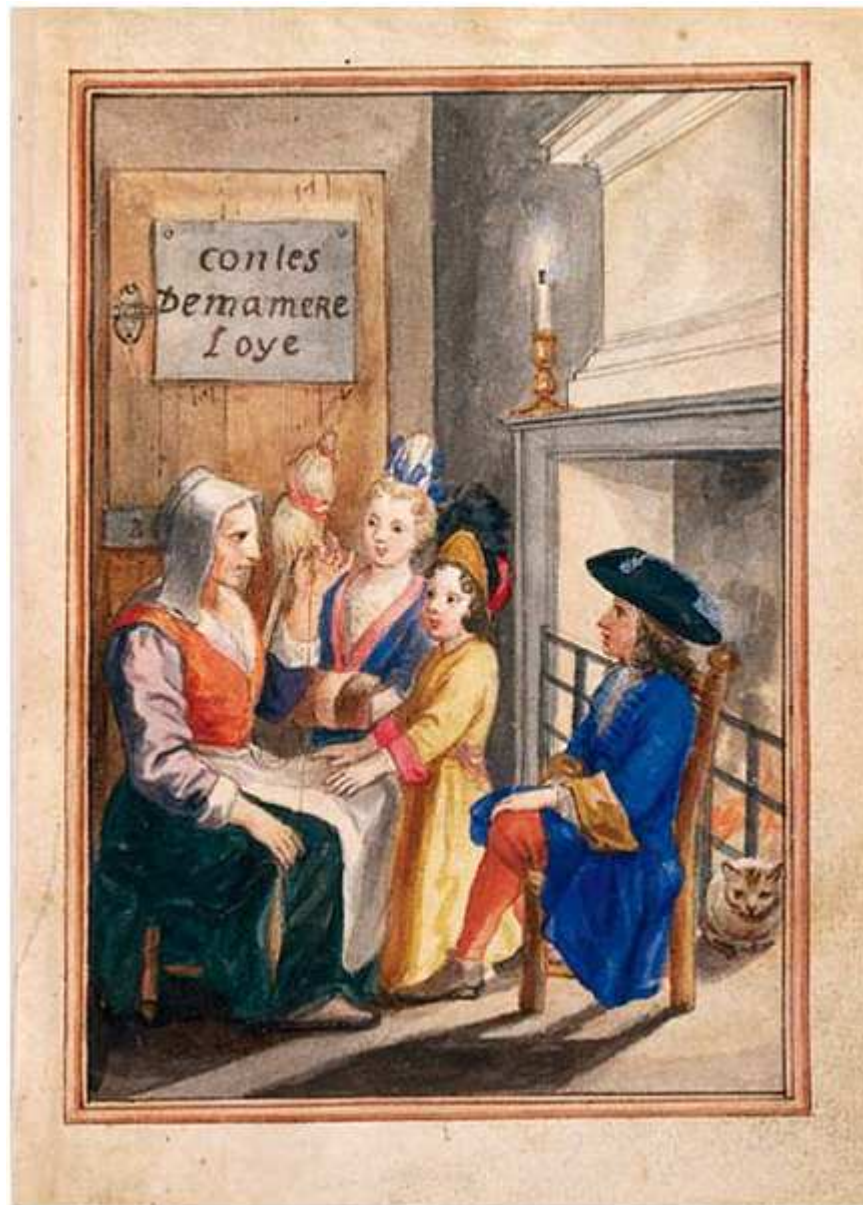 contes
DemameRe
Loye